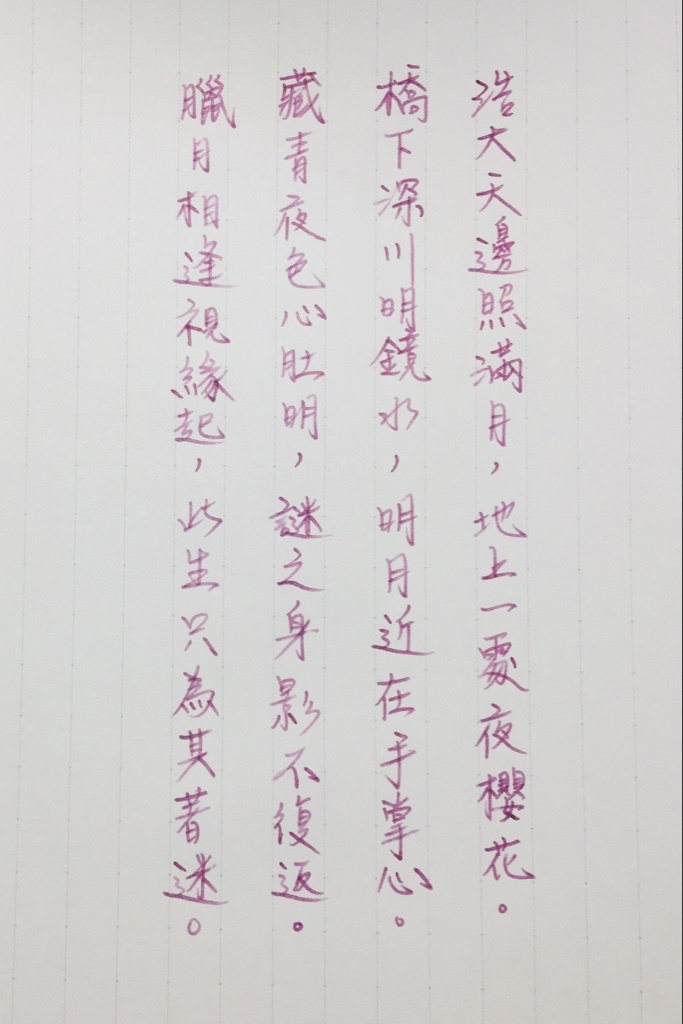 浩大天邊照滿月，地上一處夜櫻花。
橋下深川明鏡水，明月近在手掌心。
藏青夜色心肚明，謎之身影不復返。
臘月相逢視緣起，此生只為其著迷。